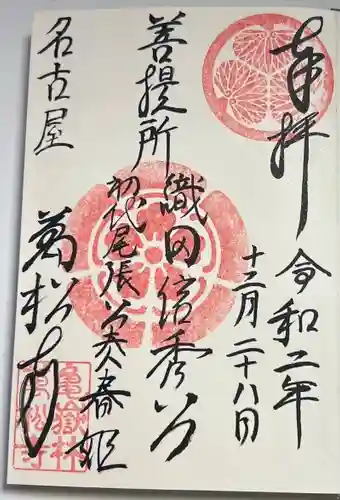 奉拝
令和二年
十二月二十八日
菩提所
織田信秀公
初代尾張公奏春姫
名古屋
萬松寺
亀嶽林
萬松寺